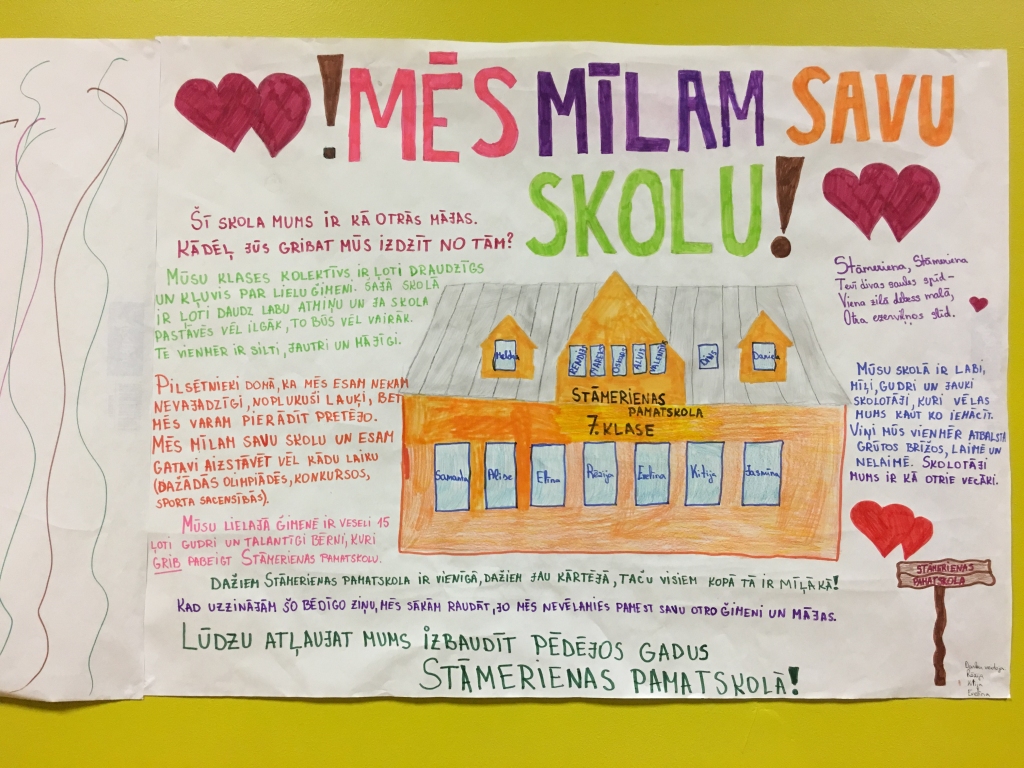 !MĒS MĪLAM SAVU
SKOLU!
ŠĪ SKOLA MUMS IR KĀ OTRĀS MĀJAS.
KĀDĒĻ JŪS GRIBAT MŪS IZDZĪT NO TĀM?
MŪSU KLASES KOLEKTĪVS IR ĻOTI DRAUDZĪGS
UN KĻUVIS PAR LIELU ĢIMENI. ŠAJĀ SKOLĀ
IR ĻOTI DAUDZ LABU ATMIŅU UN JA SKOLA
PASTĀVĒS VĒL ILGĀK, TO BŪS VĒL VAIRĀK.
TE VIENMĒR IR SILTI, JAUTRI UN MĀJĪGI.
PILSĒTNIEKI DOMĀ, KA MĒS ESAM NEKAM
NEVAJADZĪGI, NOPLUKUŠI LAUĶI, BET
MĒS VARAM PIERĀDĪT PRETĒJO.
MĒS MĪLAM SAVU SKOLU UN ESAM
GATAVI AIZSTĀVĒT VĒL KĀDU LAIKU
(DAŽĀDĀS OLIMPIĀDĒS, KONKURSOS,
SPORTA SACENSĪBĀS).
MŪSU LIELAJĀ ĢIMENĒ IR VESELI 15
ĻOTI GUDRI UN TALANTĪGI BĒRNI, KURI
GRIB PABEIGT STĀMERIENAS PAMATSKOLU.
Meldra
RENDIJS
MAREKS
OSKARS
ALVIS
VALENTĪNS
Daniela
STĀMERIENAS
PAMATSKOLA
7. KLASE
Samanta
Alise
Elīna
Rūzija
Evelīna
Kitija
Jasmīna
Stāmeriena, Stāmeriena
Tevī divas saules spīd –
Viena zilā debess malā,
Otra ezerviļņos slīd.
MŪSU SKOLĀ IR LABI,
MĪĻI, GUDRI UN JAUKI
SKOLOTĀJI, KURI VĒLAS
MUMS KAUT KO IEMĀCĪT.
VIŅI MŪS VIENMĒR ATBALSTA
GRŪTOS BRĪŽOS, LAIMĒ UN
NELAIMĒ. SKOLOTĀJI
MUMS IR KĀ OTRIE VECĀKI.
STĀMERIENAS
PAMATSKOLA
DAŽIEM STĀMERIENAS PAMATSKOLA IR VIENĪGĀ, DAŽIEM JAU KĀRTĒJĀ, TAČU VISIEM KOPĀ TĀ IR MĪĻĀKĀ!
KAD UZZINĀJĀM ŠO BĒDĪGO ZIŅU, MĒS SĀKĀM RAUDĀT, JO MĒS NEVĒLAMIES PAMEST SAVU OTRO ĢIMENI UN MĀJAS.
LŪDZU ATĻAUJAT MUMS IZBAUDĪT PĒDĒJOS GADUS
STĀMERIENAS PAMATSKOLĀ!
Kitija
Evelīna